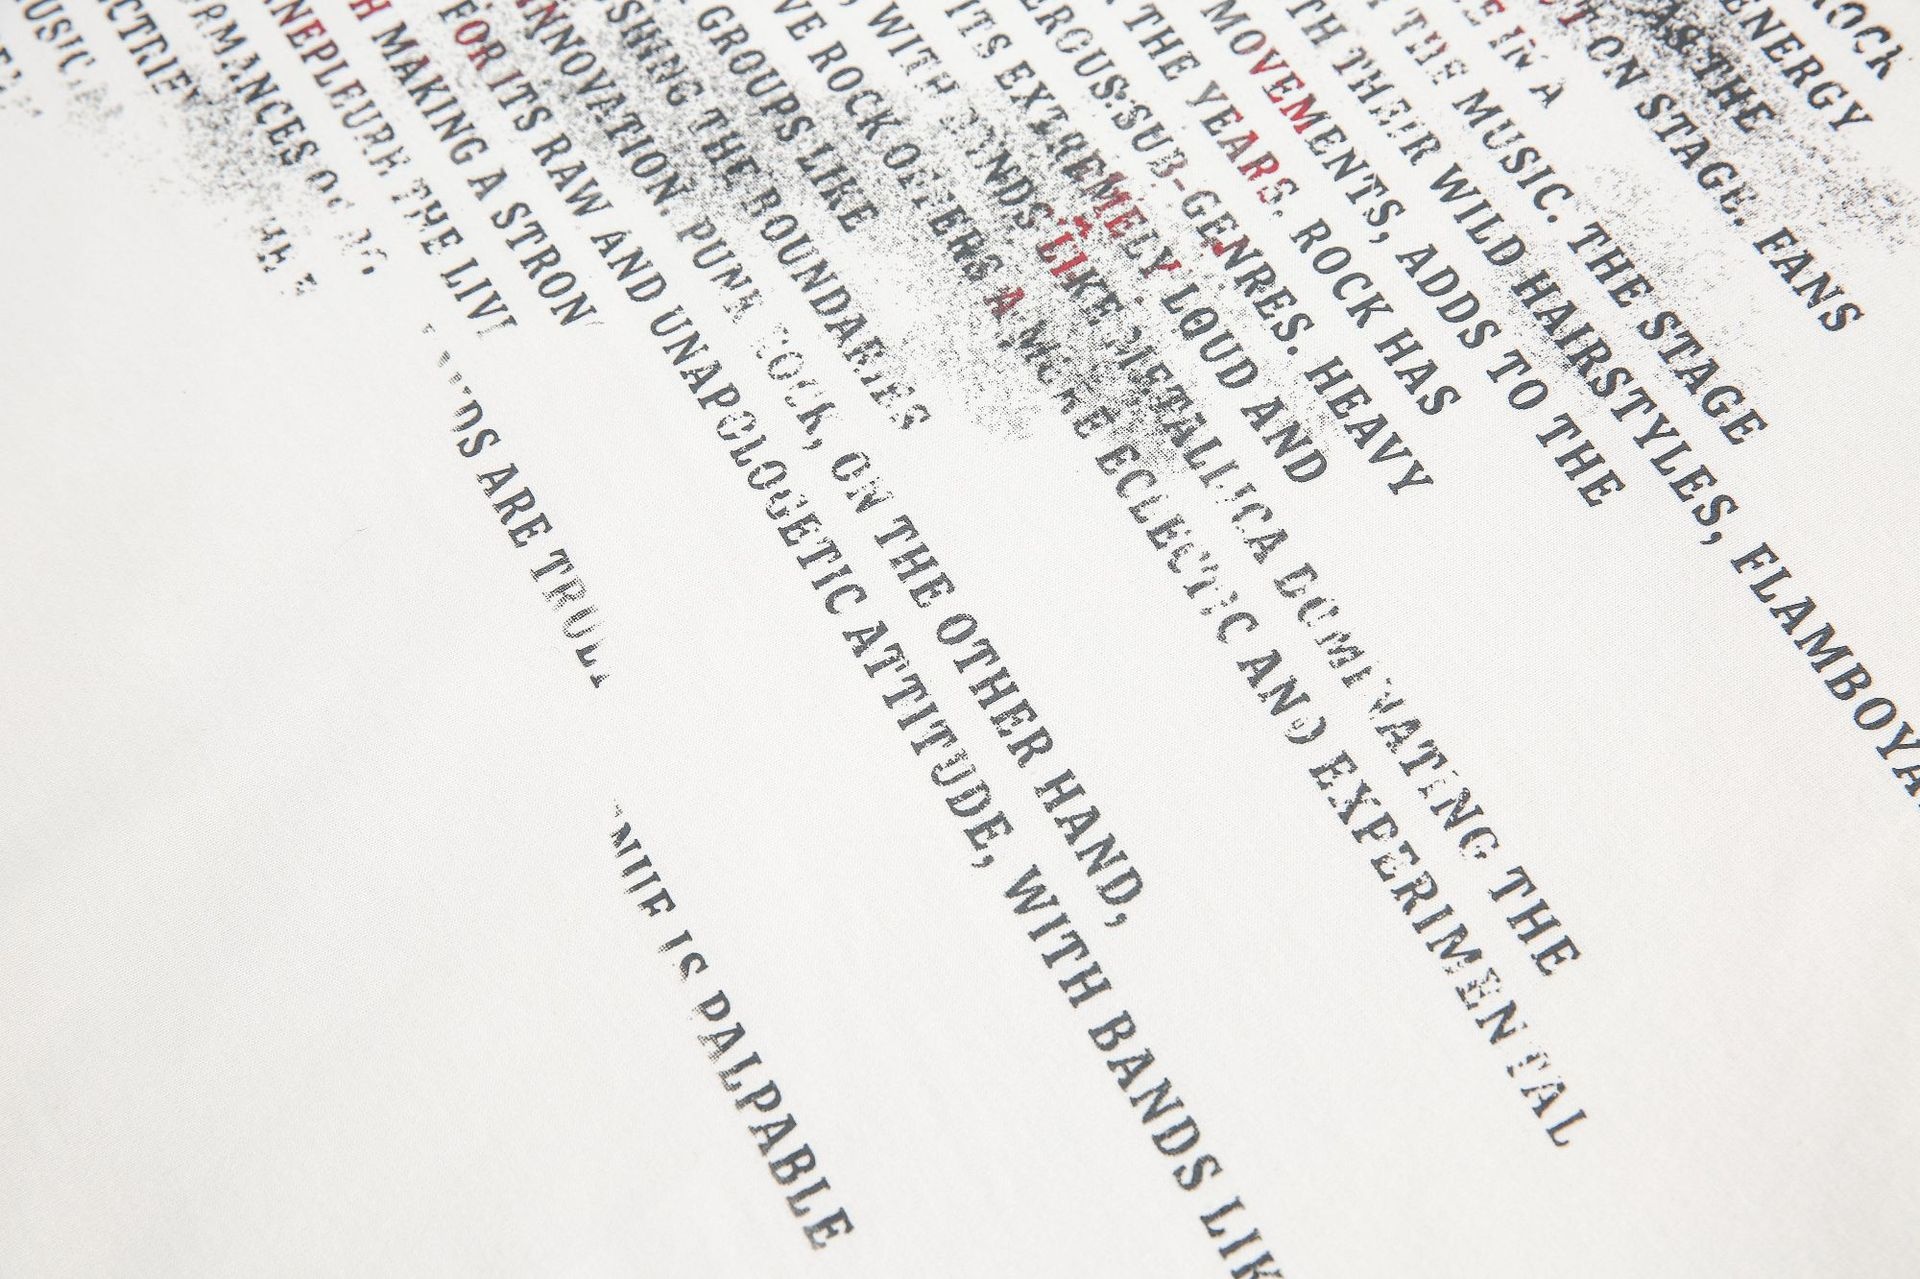 ROCK
ENERGY
AS THE
ON STAGE. FANS
E IN A
THE MUSIC. THE STAGE
TH THEIR WILD HAIRSTYLES, FLAMBOYA
MOVEMENTS, ADDS TO THE
THE YEARS. ROCK HAS
ERGUS:SUB-GENRES. HEAVY
ITS EXTREMELY LOUD AND
, WITH BANDS LIKE METALLICA DOMINATING THE
VE ROCK OFFERS A MORE ECLECTIC AND EXPERIMENTAL
GROUPS LIKE
SHING THE BOUNDARIES
INNOVATION. PUNK ROCK, ON THE OTHER HAND,
FOR ITS RAW AND UNAPOLOGETIC ATTITUDE, WITH BANDS LIK
H MAKING A STRON
NEPLEURH THE LIVI
RMANCES OF NDS ARE TRULY
CTRIFY IS PALPABLE
USIC